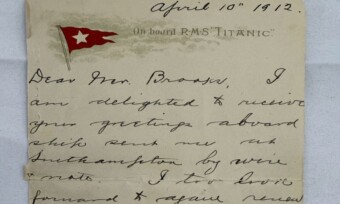 April 10th 1912.
On board R.M.S. "TITANIC"
Dear Mr. Brooks, I
am delighted to receive
your greetings aboard
ship sent me at
Southampton by wire
& note. I too look
forward to again renew